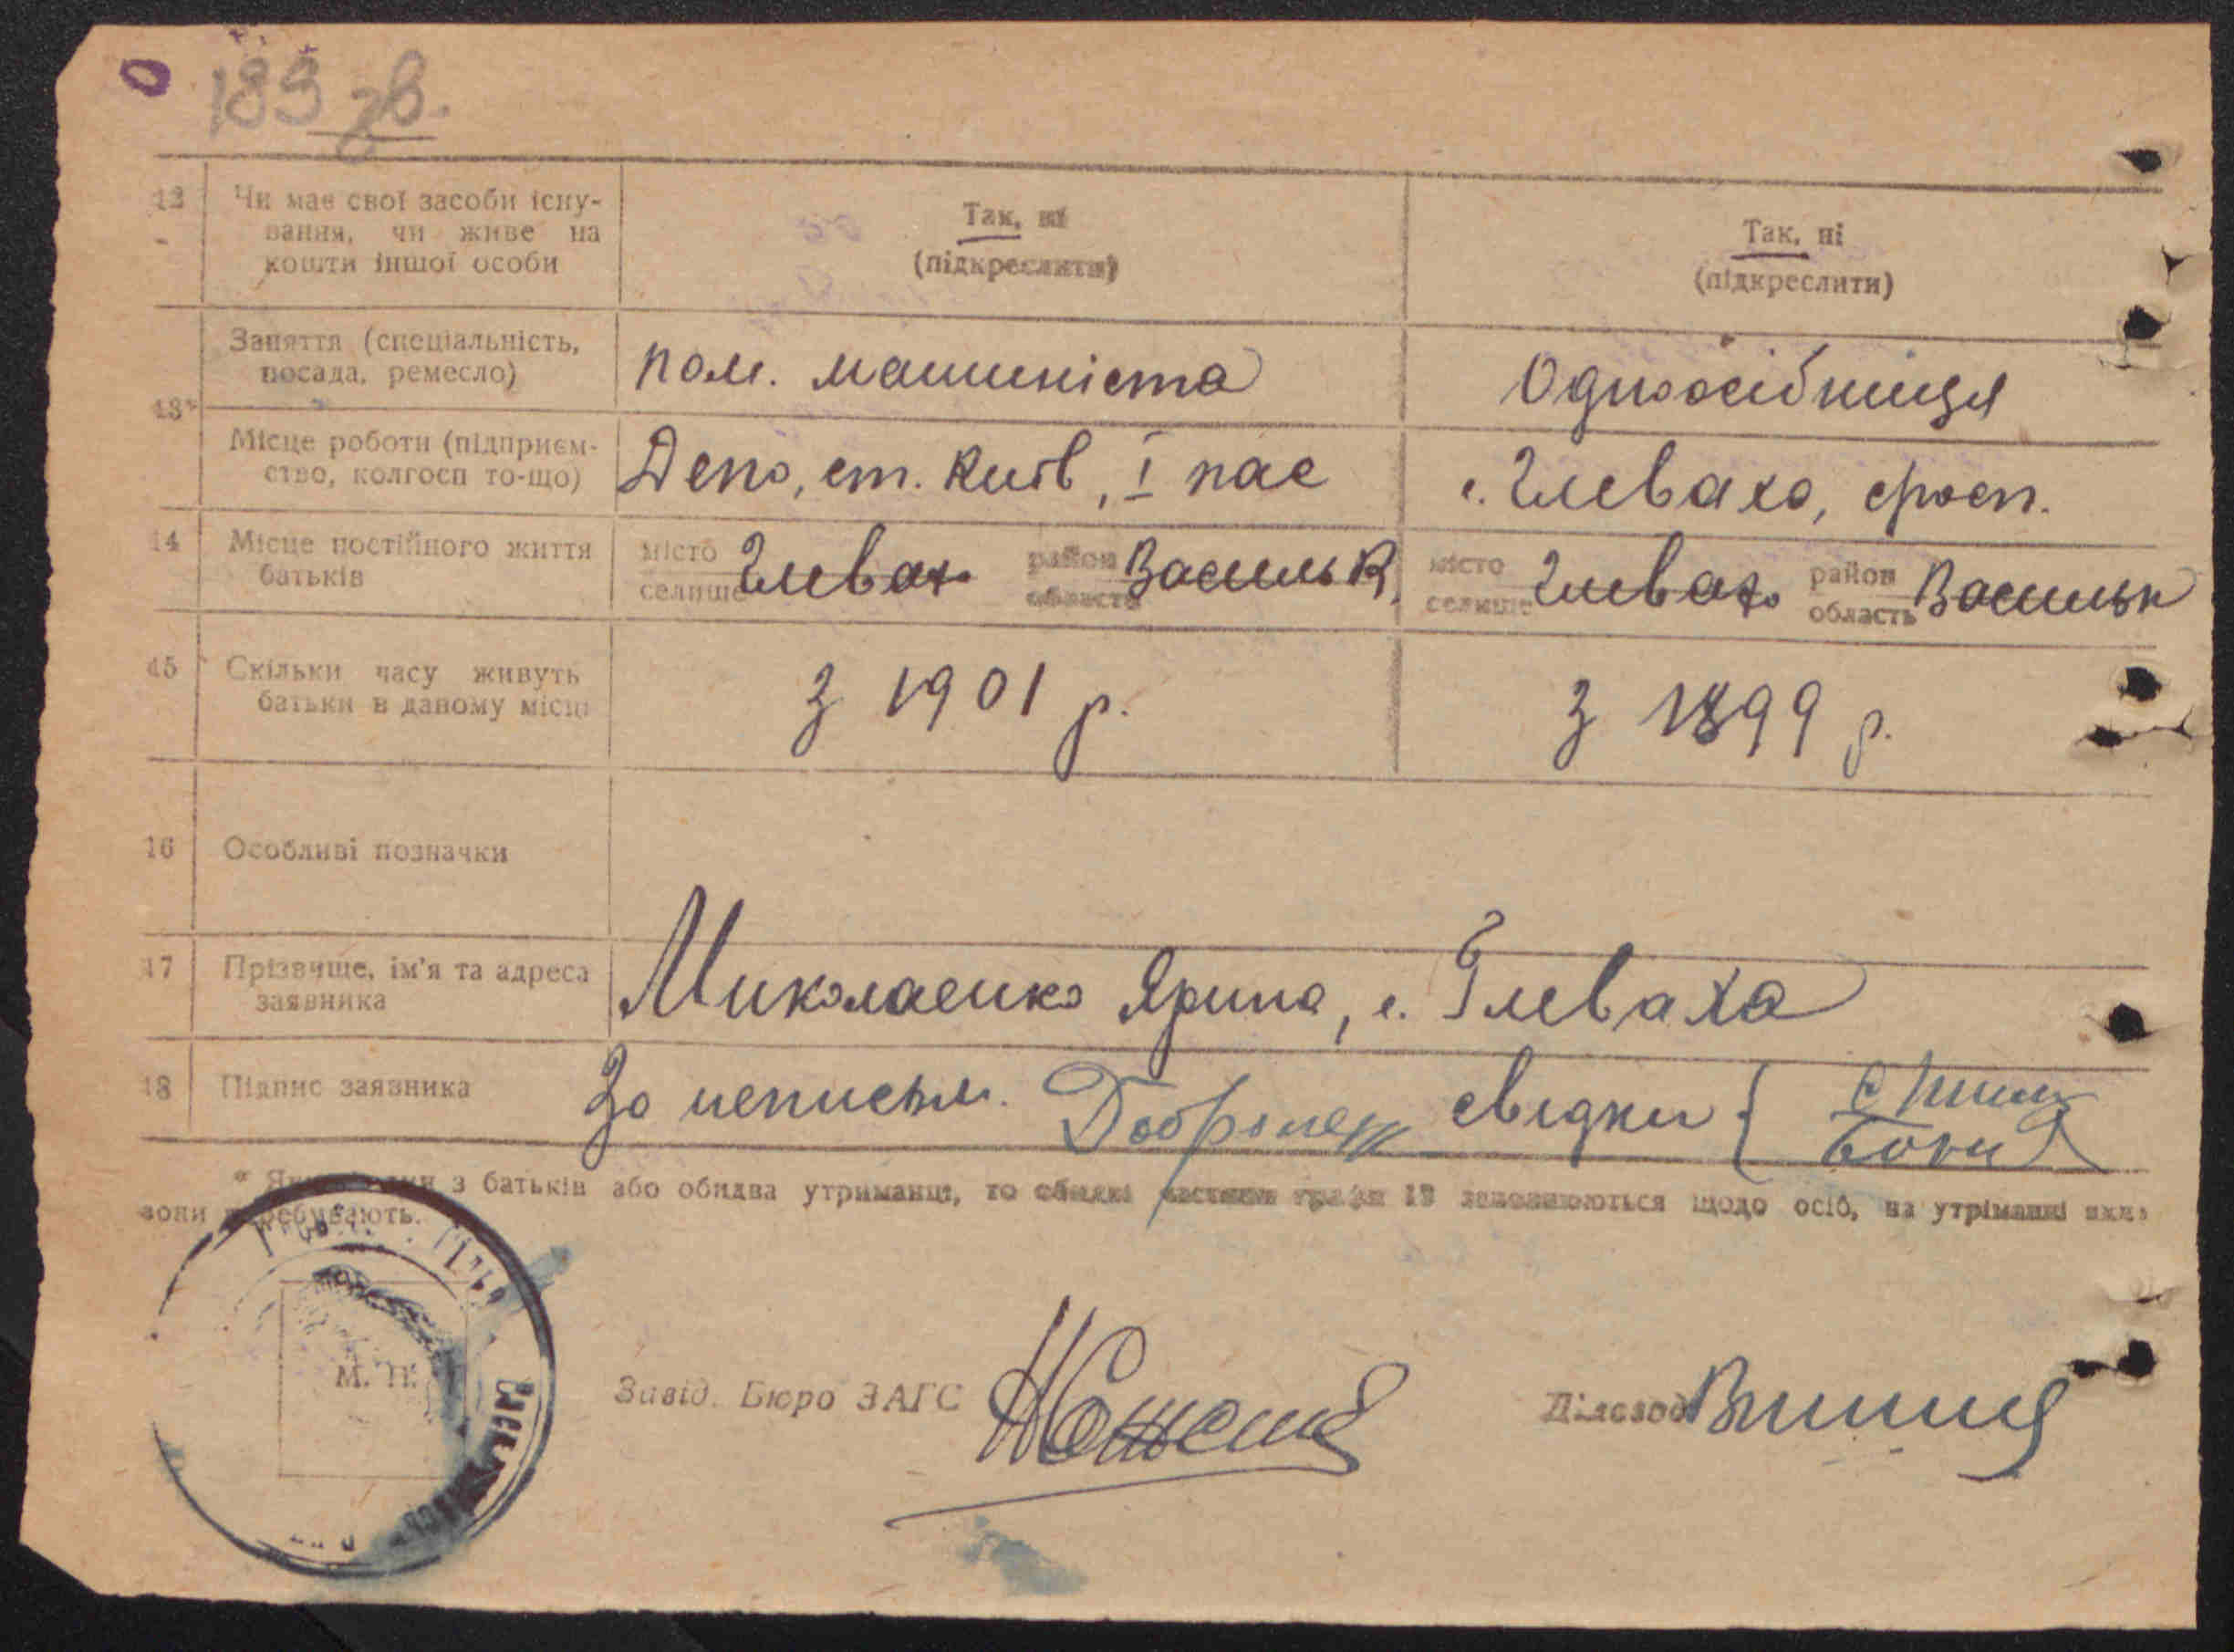 189 зв.
12 Чи має свої засоби існу-
вання, чи живе на
кошти іншої особи
Так, ні
(підкреслити)
Так, ні
(підкреслити)
13*
Заняття (спеціальність,
посада, ремесло)
пом. машиніста
Одноосібниця
Місце роботи (підприєм-
ство, колгосп то-що)
Депо, ст. Київ, I пас
с. Глеваха, гросп.
14 Місце постійного життя
батьків
місто
селище Глеваха
район
область Васильк.
місто
селище Глеваха
район
область Васильк
15 Скільки часу живуть
батьки в даному місці
З 1901 р.
З 1899 р.
16 Особливі позначки
17 Прізвище, ім'я та адреса
заявника
Миколаенко Ярина, с. Глеваха
18 Підпис заявника
За неписьм. свідки {
* Якщо один з батьків або обидва утриманці, то обидві частини графи 13 заповнюються щодо осіб, на утріманні яких
вони перебувають.
М. П.
Завід. Бюро ЗАГС
Діловод